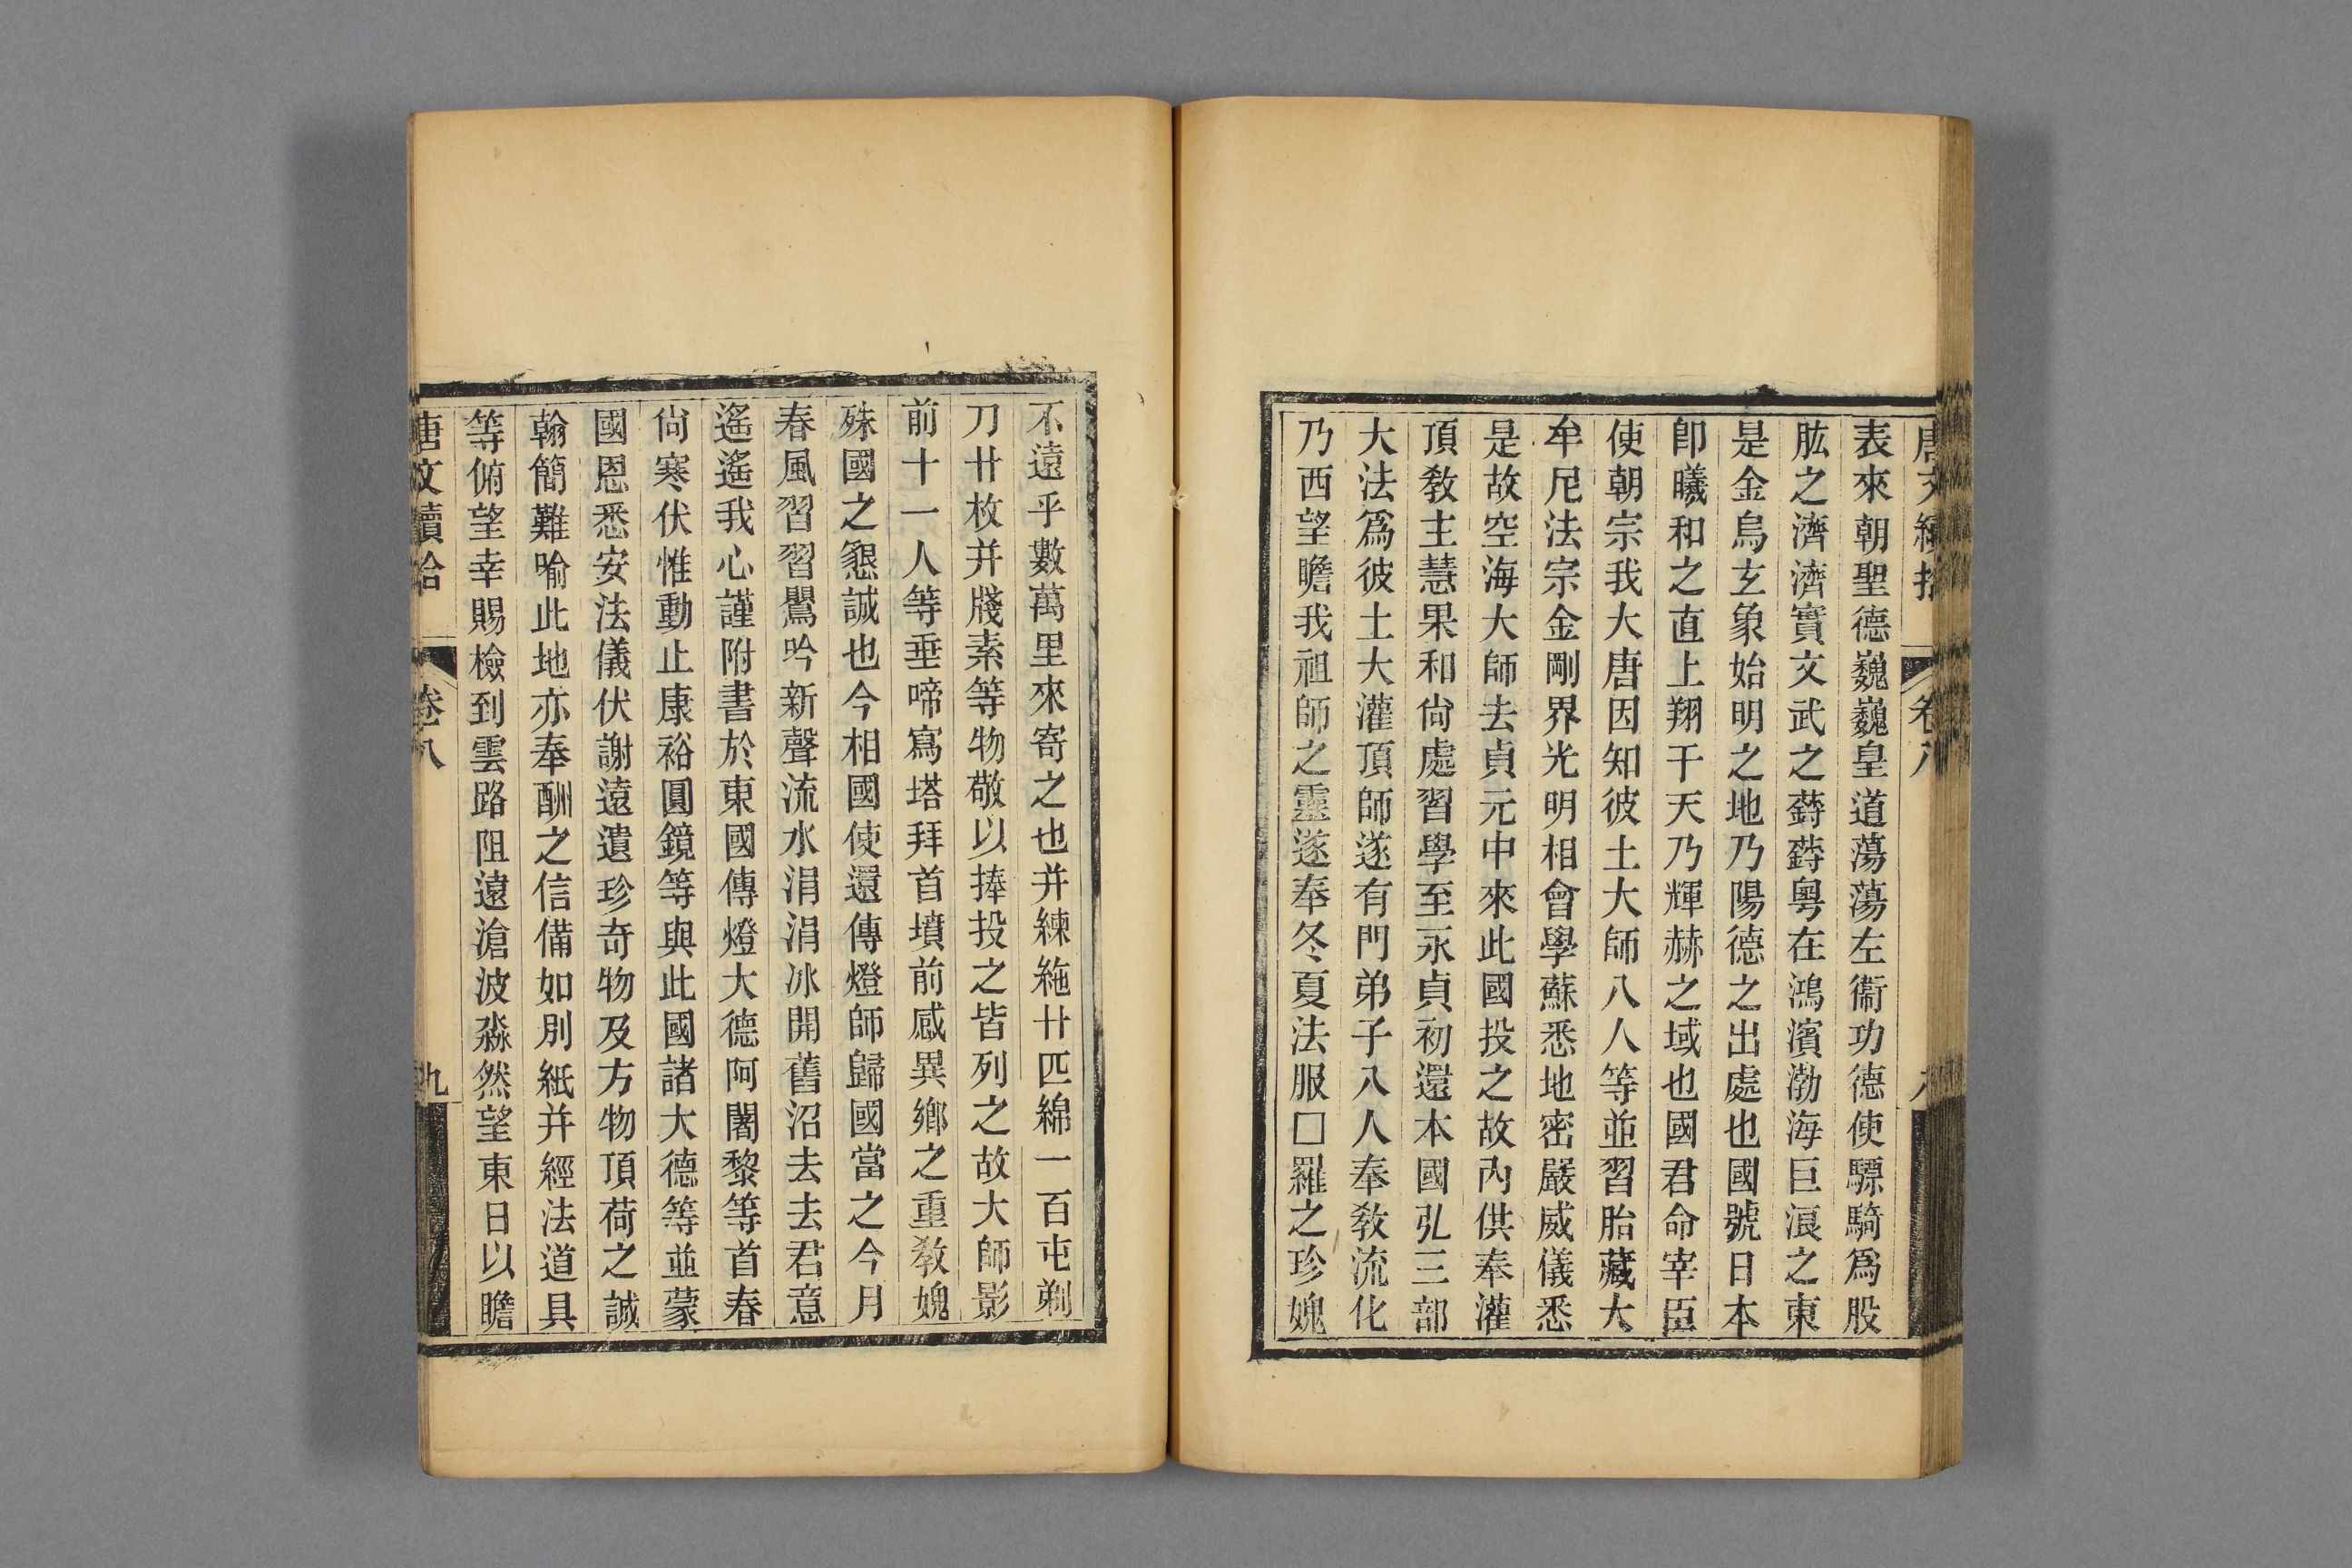 表來朝聖德巍巍皇道蕩蕩左衞功德使驃騎爲股
肱之濟濟實文武之蒔蒔粵在鴻濱渤海巨浪之東
是金烏玄象始明之地乃陽德之出處也國號日本
卽曦和之直上翔于天乃輝赫之域也國君命宰臣
使朝宗我大唐因知彼土大師八人等並習胎藏大
牟尼法宗金剛界光明相會學蘇悉地密嚴威儀悉
是故空海大師去貞元中來此國投之故內供奉灌
頂敎主慧果和尙處習學至永貞初還本國弘三部
大法爲彼土大灌頂師遂有門弟子入人奉敎流化
乃西望瞻我祖師之靈遂奉冬夏法服□羅之珍媿
不遠乎數萬里來寄之也并練絁廿匹綿一百屯剃
刀廿枚并牋素等物敬以捧投之皆列之故大師影
前十一人等垂啼寫塔拜首墳前感異鄉之重敎媿
殊國之懇誠也今相國使還傳燈師歸國當之今月
春風習習鸎吟新聲流水涓涓冰開舊沼去去君意
遙遙我心謹附書於東國傳燈大德阿闍黎等首春
尙寒伏惟動止康裕圓鏡等與此國諸大德等並蒙
國恩悉安法儀伏謝遠遺珍奇物及方物頂荷之誠
翰簡難喻此地亦奉酬之信備如別紙并經法道具
等俯望幸賜檢到雲路阻遠滄波淼然望東日以瞻
唐文續拾 卷八 九